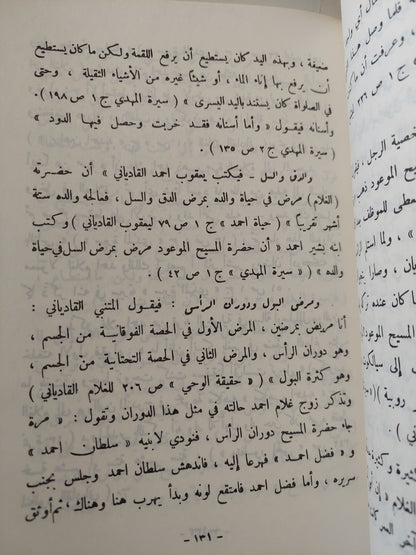 ضعيفة ، وبهذه اليد كان يستطيع أن يرفع اللقمة ولكن ما كان يستطيع
أن يرفع بها إناء الماء ، أو شيئًا غيره من الأشياء الثقيلة ، وحتى
في الصلواة كان يستند باليد اليسرى » ( سيرة المهدي ج ١ ص ١٩٨ ) .
وأسنانه فيقول « وأما أسنانه فقد خربت وحصل فيها الدود »
( سيرة المهدي ج ٢ ص ١٣٥ ) .
والدق والسل - فيكتب يعقوب احمد القادياني « أن حضرته
( الغلام ) مرض في حياة والده بمرض الدق والسل ، فعالجه والده ستة
أشهر تقريبًا » ( حياة احمد ج ١ ص ٧٩ ليعقوب القادياني ) وكتب
ابنه بشير احمد « أن حضرة المسيح الموعود مرض بمرض السل في حياة
والده » ( « سيرة المهدي » ج ١ ص ٤٢ ) .
ومرض البول ودوران الرأس : فيقول المتنبي القادياني :
أنا مريض بمرضين ، المرض الأول في الحصة الفوقانية من الجسم ،
وهو دوران الرأس ، والمرض الثاني في الحصة التحتانية من الجسم ،
وهو كثرة البول » ( « حقيقة الوحي » ص ٢٠٦ للغلام القادياني )
وتذكر زوج غلام احمد حالته في مثل هذا الدوران وتقول : « مرة
جاء حضرة المسيح دوران الرأس ، فنودي لأبنيه « سلطان احمد »
و « فضل احمد » فهرعا إليه ، فاندهش سلطان احمد وجلس بجنب
سريره ، وأما فضل احمد فامتقع لونه وبدأ يهرب هنا وهناك ، ثم أوثق
- ١٣١ -